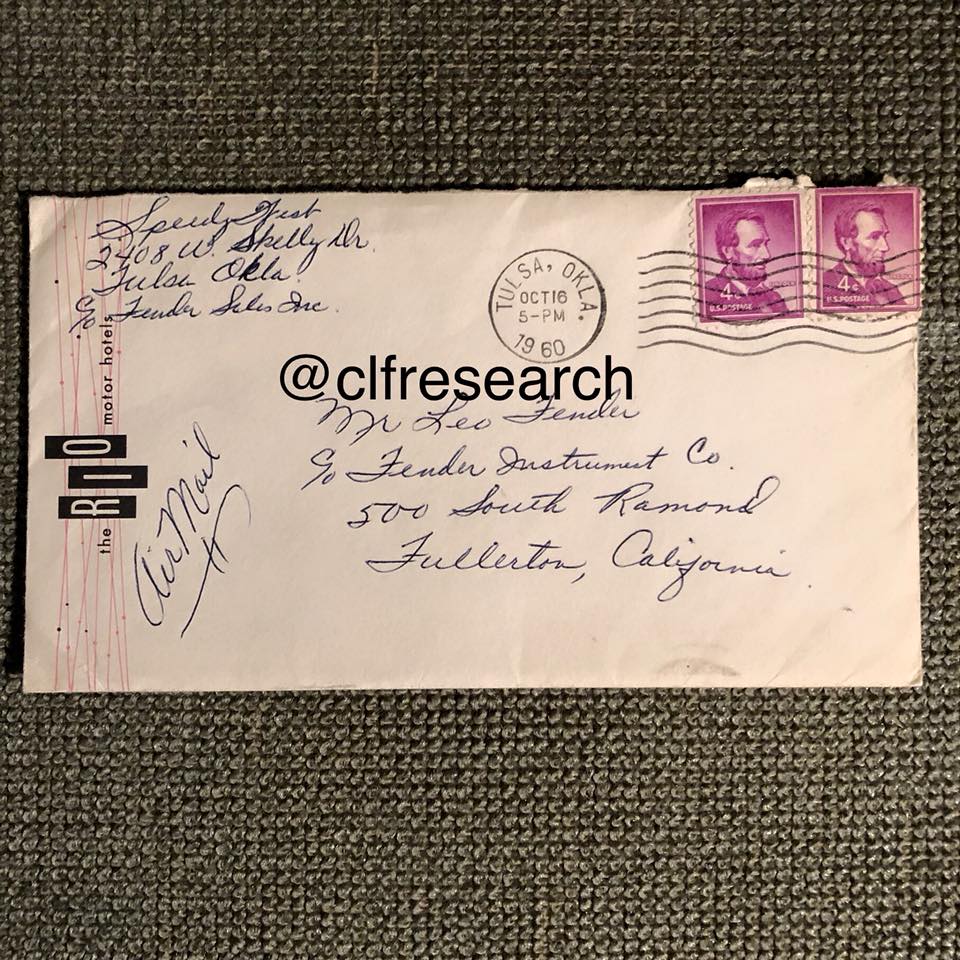 Speedy West
2408 W. Skelly Dr.
Tulsa Okla.
c/o Fender Sales Inc.
TULSA, OKLA.
OCT 16
5-PM
1960
4¢
U.S. POSTAGE
4¢
U.S. POSTAGE
@clfresearch
Mr Leo Fender
c/o Fender Instrument Co.
500 South Ramond
Fullerton, California.
Air Mail
the RIO motor hotels